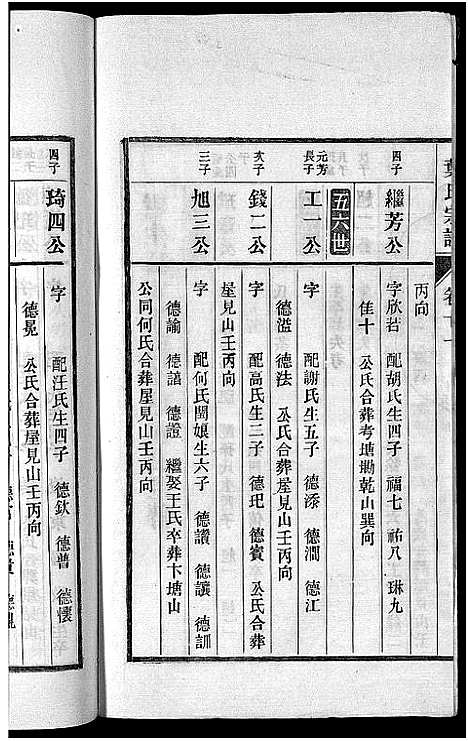 丙向
四子 繼芳公 字欣若 配胡氏生四子 福七 祐八 琳九
佳十 公氏合葬考塘坳乾山巽向
五六世
元芳長子 工一公 字 配謝氏生五子 德添 德潤 德江
德溢 德法 公氏合葬屋見山壬丙向
次子 錢二公 字 配高氏生三子 德玘 德賓 公氏合葬
屋見山壬丙向
三子 旭三公 字 配何氏閏娘生六子 德讚 德讓 德訓
德諭 德譜 德證 繼娶王氏卒葬卞塘山
公同何氏合葬屋見山壬丙向
四子 琦四公 字 配汪氏生四子 德欽 德普 德懷
德晃 公氏合葬屋見山壬丙向